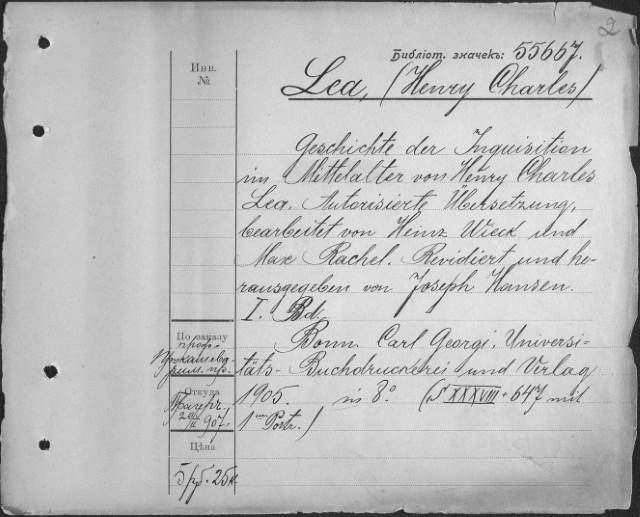 2
Библiот. значекъ: 55667.
Инв.
№
Lea, (Henry Charles)
Geschichte der Inquisition
im Mittelalter von Henry Charles
Lea. Autorisierte Übersetzung,
bearbeitet von Heinz Wieck und
Max Rachel. Revidiert und he-
rausgegeben von Joseph Hansen.
I. Bd.
По заказу
проф.
Bonn. Carl Georgi, Universi-
täts- Buchdruckerei und Verlag
Откуда
1905. in 8° (S XXXVIII + 647 mit
1 Portr.)
907.
Цѣна
5 руб. 25 к.